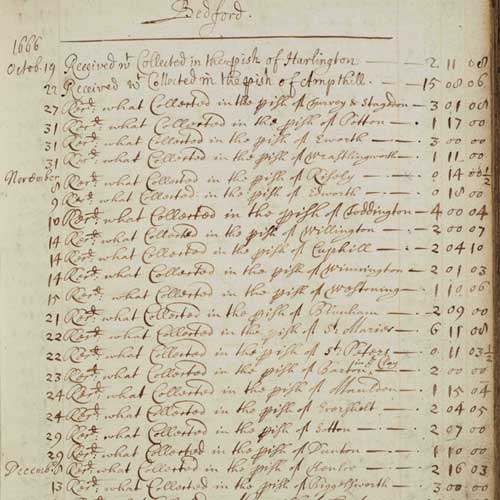 Bedford.
1666
Octob. 19 Received wt Collected in the pish of Harlington — 2 11 08
22 Received wt Collected in the pish of Ampthill. — 15 08 06
27 Recd: what Collected in the pish of & Stagsden — 3 01 08
31 Recd: what Collected in the pish of Potton — 1 17 00
31 Recd: what Collected in the pish of Eworth — 3 00 00
31 Recd: what Collected in the pish of Wrastlingworth — 1 11 00
November 8 Recd: what Collected in the pish of Risely — 0 14 00½
9 Recd: what Collected in the pish of Edworth — 0 18 00
10 Recd: what Collected in the pish of Toddington — 4 00 04
14 Recd: what Collected in the pish of Willington — 2 00 07
14 Recd: what Collected in the pish of — 2 04 10
14 Recd: what Collected in the pish of — 2 01 03
15 Recd: what Collected in the pish of Westoning — 1 10 06
21 Recd: what Collected in the pish of Blunham — 2 09 00
22 Recd: what Collected in the pish of St. Maries — 6 11 08
22 Recd: what Collected in the pish of St. Peters — 0 11 03½
23 Recd: what Collected in the pish of Barton in ye Clay — 2 00 00
24 Recd: what Collected in the pish of Maulden — 1 15 04
24 Recd: what Collected in the pish of Evershelt — 2 04 05
29 Recd: what Collected in the pish of Sutton — 2 07 00
Decemb. Recd: what Collected in the pish of Dunton — 1 10 00
8 Recd: what Collected in the pish of — 2 16 03
13 Recd: what Collected in the pish of Bigglesworth — 3 00 00